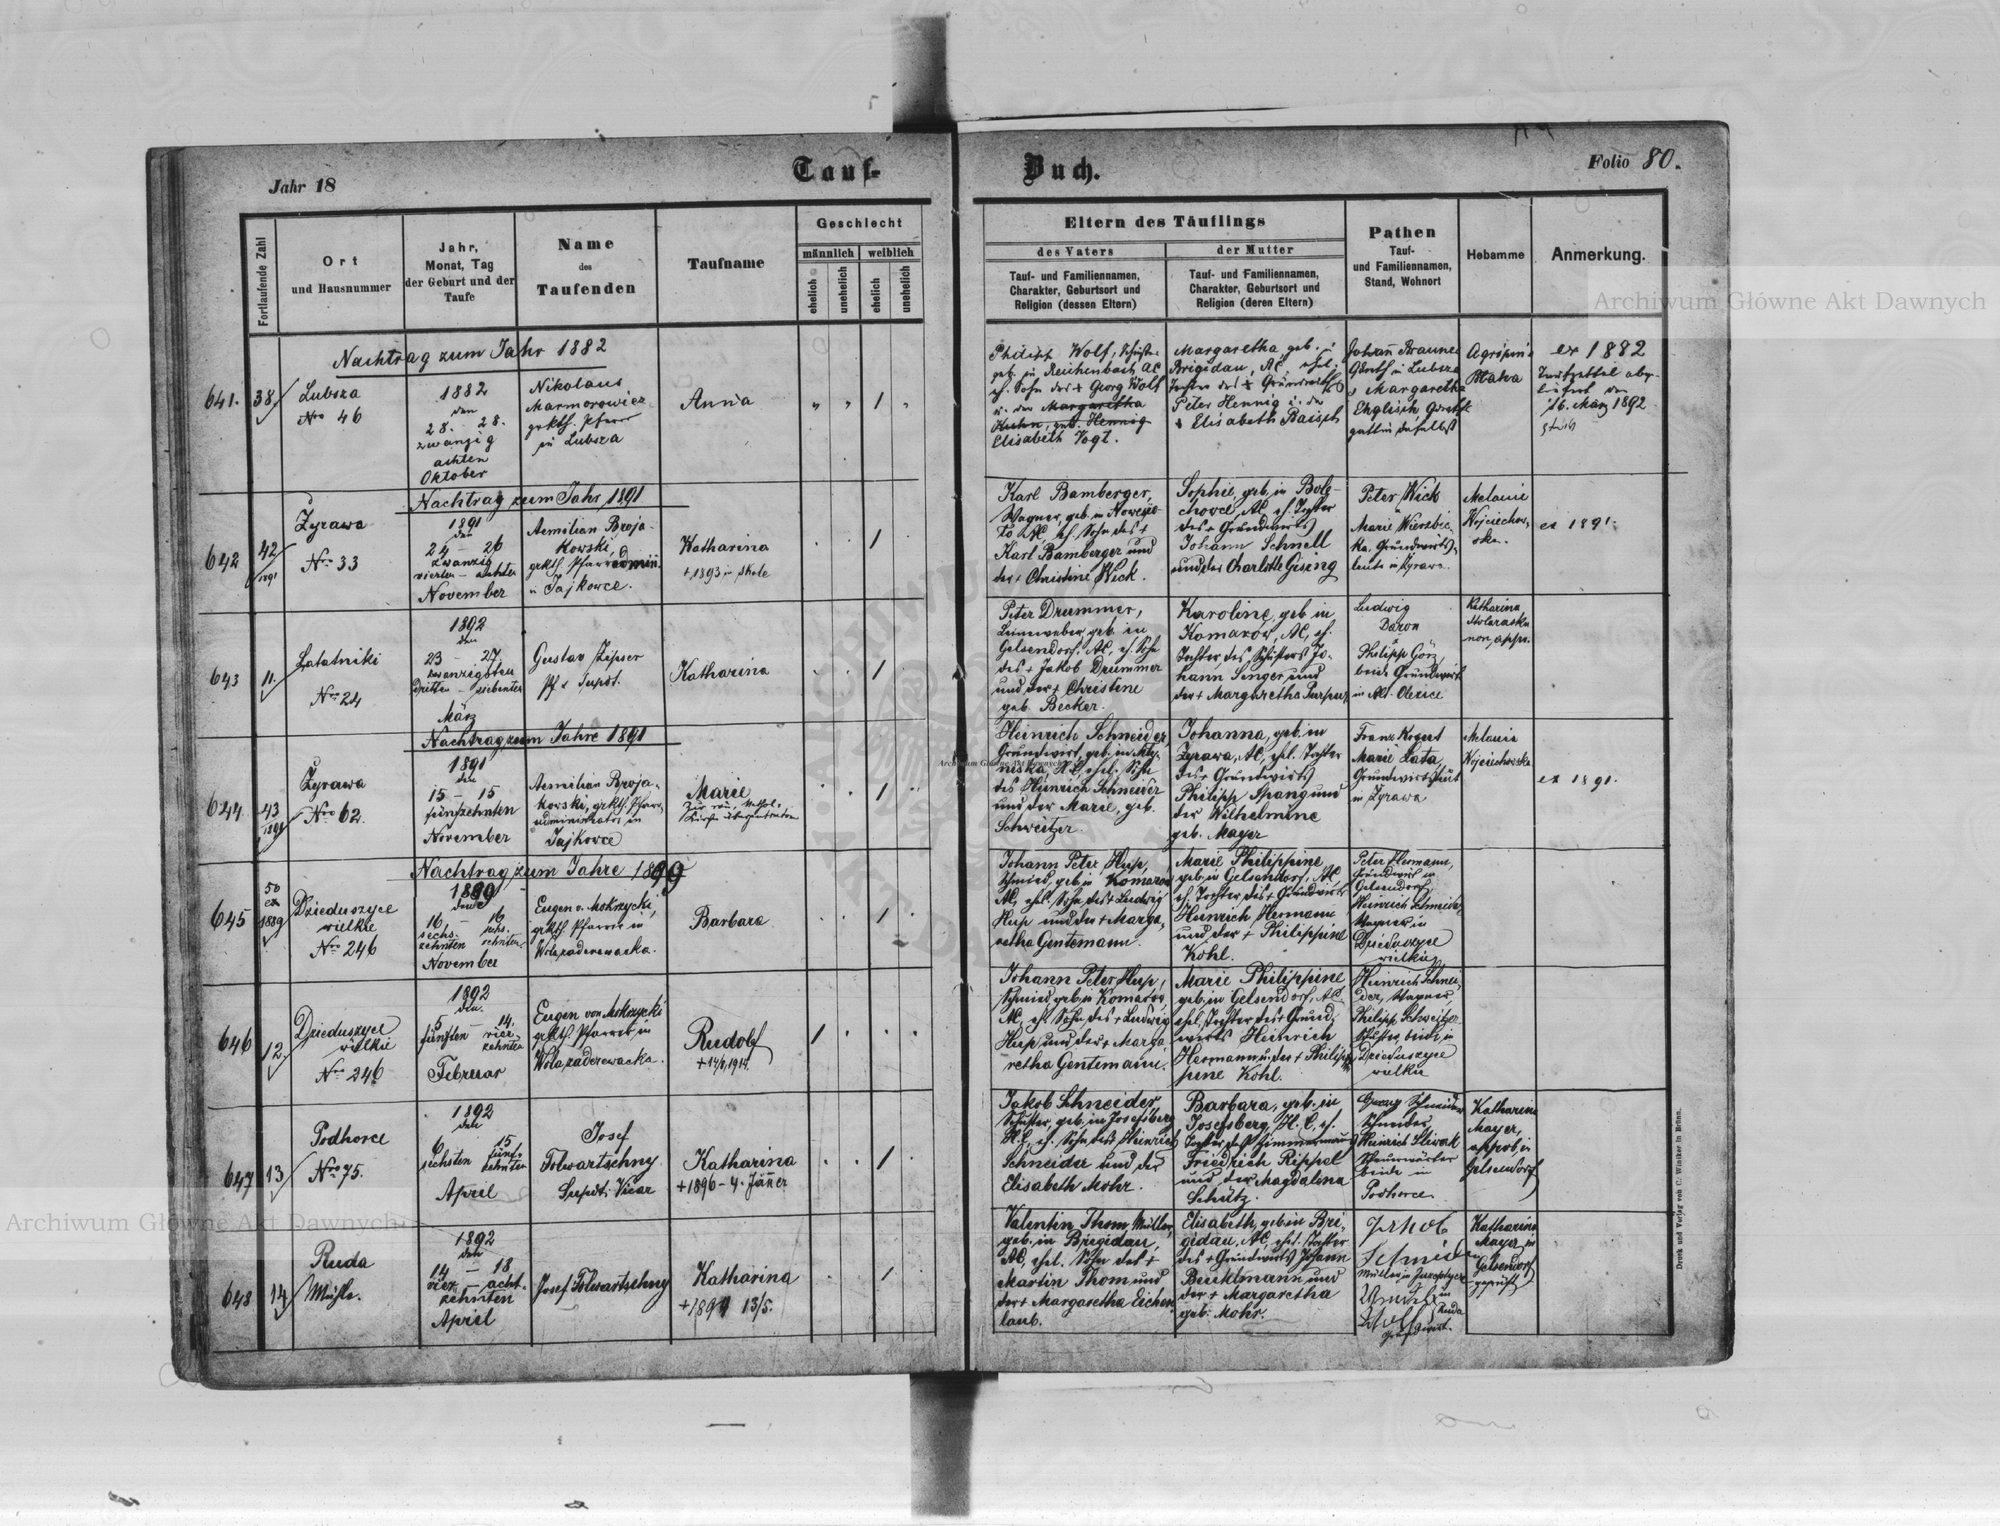 Jahr 18
Tauf-
Buch.
Folio 80.
Fortlaufende Zahl
Ort
und Hausnummer
Jahr,
Monat, Tag
der Geburt und der
Taufe
Name
des
Taufenden
Taufname
Geschlecht
männlich
weiblich
ehelich
unehelich
ehelich
unehelich
Eltern des Täuflings
des Vaters
der Mutter
Tauf- und Familiennamen,
Charakter, Geburtsort und
Religion (dessen Eltern)
Tauf- und Familiennamen,
Charakter, Geburtsort und
Religion (deren Eltern)
Pathen
Tauf-
und Familiennamen,
Stand, Wohnort
Hebamme
Anmerkung.
Archiwum Główne Akt Dawnych
Nachtrag zum Jahr 1882
641.
38.
Lubsza
Nro 46
1882
den
28. - 28.
zwanzig
achten
Oktober
Nikolaus
Marmorowicz
grkth. Pfarrer
in Lubsza
Anna
Philipp Wolf,
geb. in Reichenbach AC
eh. Sohn des + Georg Wolf
u. der Margaretha
Kuhn, geb. Hennig
Elisabeth Vogt.
Margaretha geb. in
Brigidau, AC, ehel.
Tochter des + Grundwirths
Peter Hennig u. der
+ Elisabeth Baisch
Johann Brauner
Grdwth in Lubsza
Margaretha
Englisch
gattin daselbst
ex 1882
16. März 1892
Nachtrag zum Jahr 1891
642
42
1891
Zyrawa
Nro 33
1891
den
24 - 26
zwanzig
vierten - sechsten
November
Aemilian Broja-
kowski,
grkth. Pfarradmin.
in Jajkowce.
Katharina
+ 1893 in Skole
Karl Bamberger,
Wagner, geb. in Nowesio-
lo AC, eh. Sohn des +
Karl Bamberger und
der + Christine Wick.
Sophie, geb. in Bole-
chow, AC, eh. Tochter
des + Grundwirts
Johann Schnell
und der Charlotte Gising
Peter Wick
Marie Wierzbic-
ka, Grundwirts-
leute in Zyrawa.
Melanie
Wojciechow-
ska.
ex 1891.
643
11.
Latatniki
Nro 24
1892
den
23 - 27
zwanzigsten
dritten - siebenten
März
Gustav Zipser
Pf. u. Supdt.
Katharina
Peter Drummer,
Leinweber, geb. in
Gelsendorf, AC, eh. Sohn
des + Jakob Drummer
und der + Christine
geb. Becker.
Karoline, geb. in
Komarów, AC, eh.
Tochter des Schusters Jo-
hann Singer und
der + Margaretha Purpur
Ludwig
Daron
Philipp Görz
beide Grundwirte
in Alt Olexice
Katharina
non appr.
Nachtrag zum Jahre 1891
644
43
1891
Zyrawa
Nro 62.
1891
den
15 - 15
fünfzehnten
November
Aemilian Broja-
kowski, grkth. Pfarr-
administrator in
Jajkowce
Marie
Zur röm. kathol.
Kirche übergetreten
Heinrich Schneider,
Grundwirt, geb. in Mły-
niska, H.C, ehel. Sohn
des Heinrich Schneider
und der Marie, geb.
Schweitzer.
Johanna, geb. in
Zyrawa, AC, ehel. Tochter
des + Grundwirts
Philipp Spang und
der Wilhelmine
geb. Mayer
Franz Kogut
Marie Lata,
Grundwirtsleut
in Zyrawa
Melania
Wojciechowska
ex 1891.
Archiwum Główne Akt Dawnych
Nachtrag zum Jahre 1889
645
50
ex
1889
Dzieduszyce
wielkie
Nro 246
1889
den
16 - 16
sechs- sechs-
zehnten zehnten
November
Eugen v. Mokrzycki,
grkth. Pfarrer in
Wolazaderewacka.
Barbara
Johann Peter Hup,
Schmied, geb. in Komarow
AC, ehel. Sohn des + Ludwig
Hup und der + Marga-
retha Gentemann.
Marie Philippine
geb. in Gelsendorf, AC,
eh. Tochter des + Grundwirts
Heinrich Hermann
und der + Philippine
Kohl.
Peter Hermann,
Grundwirt in
Gelsendorf,
Heinrich Schneider,
Wagner in
Dzieduszyce
wielkie
646
12.
Dzieduszyce
wielkie
Nro 246
1892
den
5 - 14.
fünften - vier-
zehnten
Februar
Eugen von Mokrzycki
grkth. Pfarrer in
Wolazaderewacka.
Rudolf
Johann Peter Hup,
Schmied, geb. in Komarow
AC, eh. Sohn des + Ludwig
Hup und der + Marga-
retha Gentemann.
Marie Philippine
geb. in Gelsendorf, AC,
ehel. Tochter des + Grund-
wirts Heinrich
Hermann u. der + Philip-
pine Kohl.
Heinrich Schnei-
der, Wagner,
Philipp Schweitzer
Schuster, beide in
Dzieduszyce
wielkie
647
13
Podhorce
Nro 75.
1892
den
6 15
sechsten fünf-
zehnten
April
Josef
Tolwartschny
Supdt. Vicar
Katharina
+ 1896 - 4. Jäner
Jakob Schneider
Schuster, geb. in Josefsberg
H.C, eh. Sohn des Heinrich
Schneider und der
Elisabeth Mohr.
Barbara, geb. in
Josefsberg, H.C, eh.
Tochter des Zimmermanns
Friedrich Rippel
und der Magdalena
Schütz.
Georg Schneider
Schneider,
Heinrich Sliwak
beide in
Podhorce.
Katharina
Mayer,
approb. in
Gelsendorf
648
14
Ruda
Mühle.
1892
den
14 - 18
vier - acht-
zehnten
April
Josef Tolwartschny
Katharina
+ 1899 13/5.
Valentin Thom, Müller,
geb. in Brigidau,
AC, ehel. Sohn des +
Martin Thom und
der + Margaretha Eichen-
laub.
Elisabeth, geb. in Bri-
gidau, AC, ehel. Tochter
des + Grundwirts Johann
Bucklmann und
der + Margaretha
geb. Mohr.
Jakob
Schmid
Katharina
Mayer in
Gelsendorf
geprüft
Archiwum Główne Akt Dawnych
Druck und Verlag von C. Winiker in Brünn.